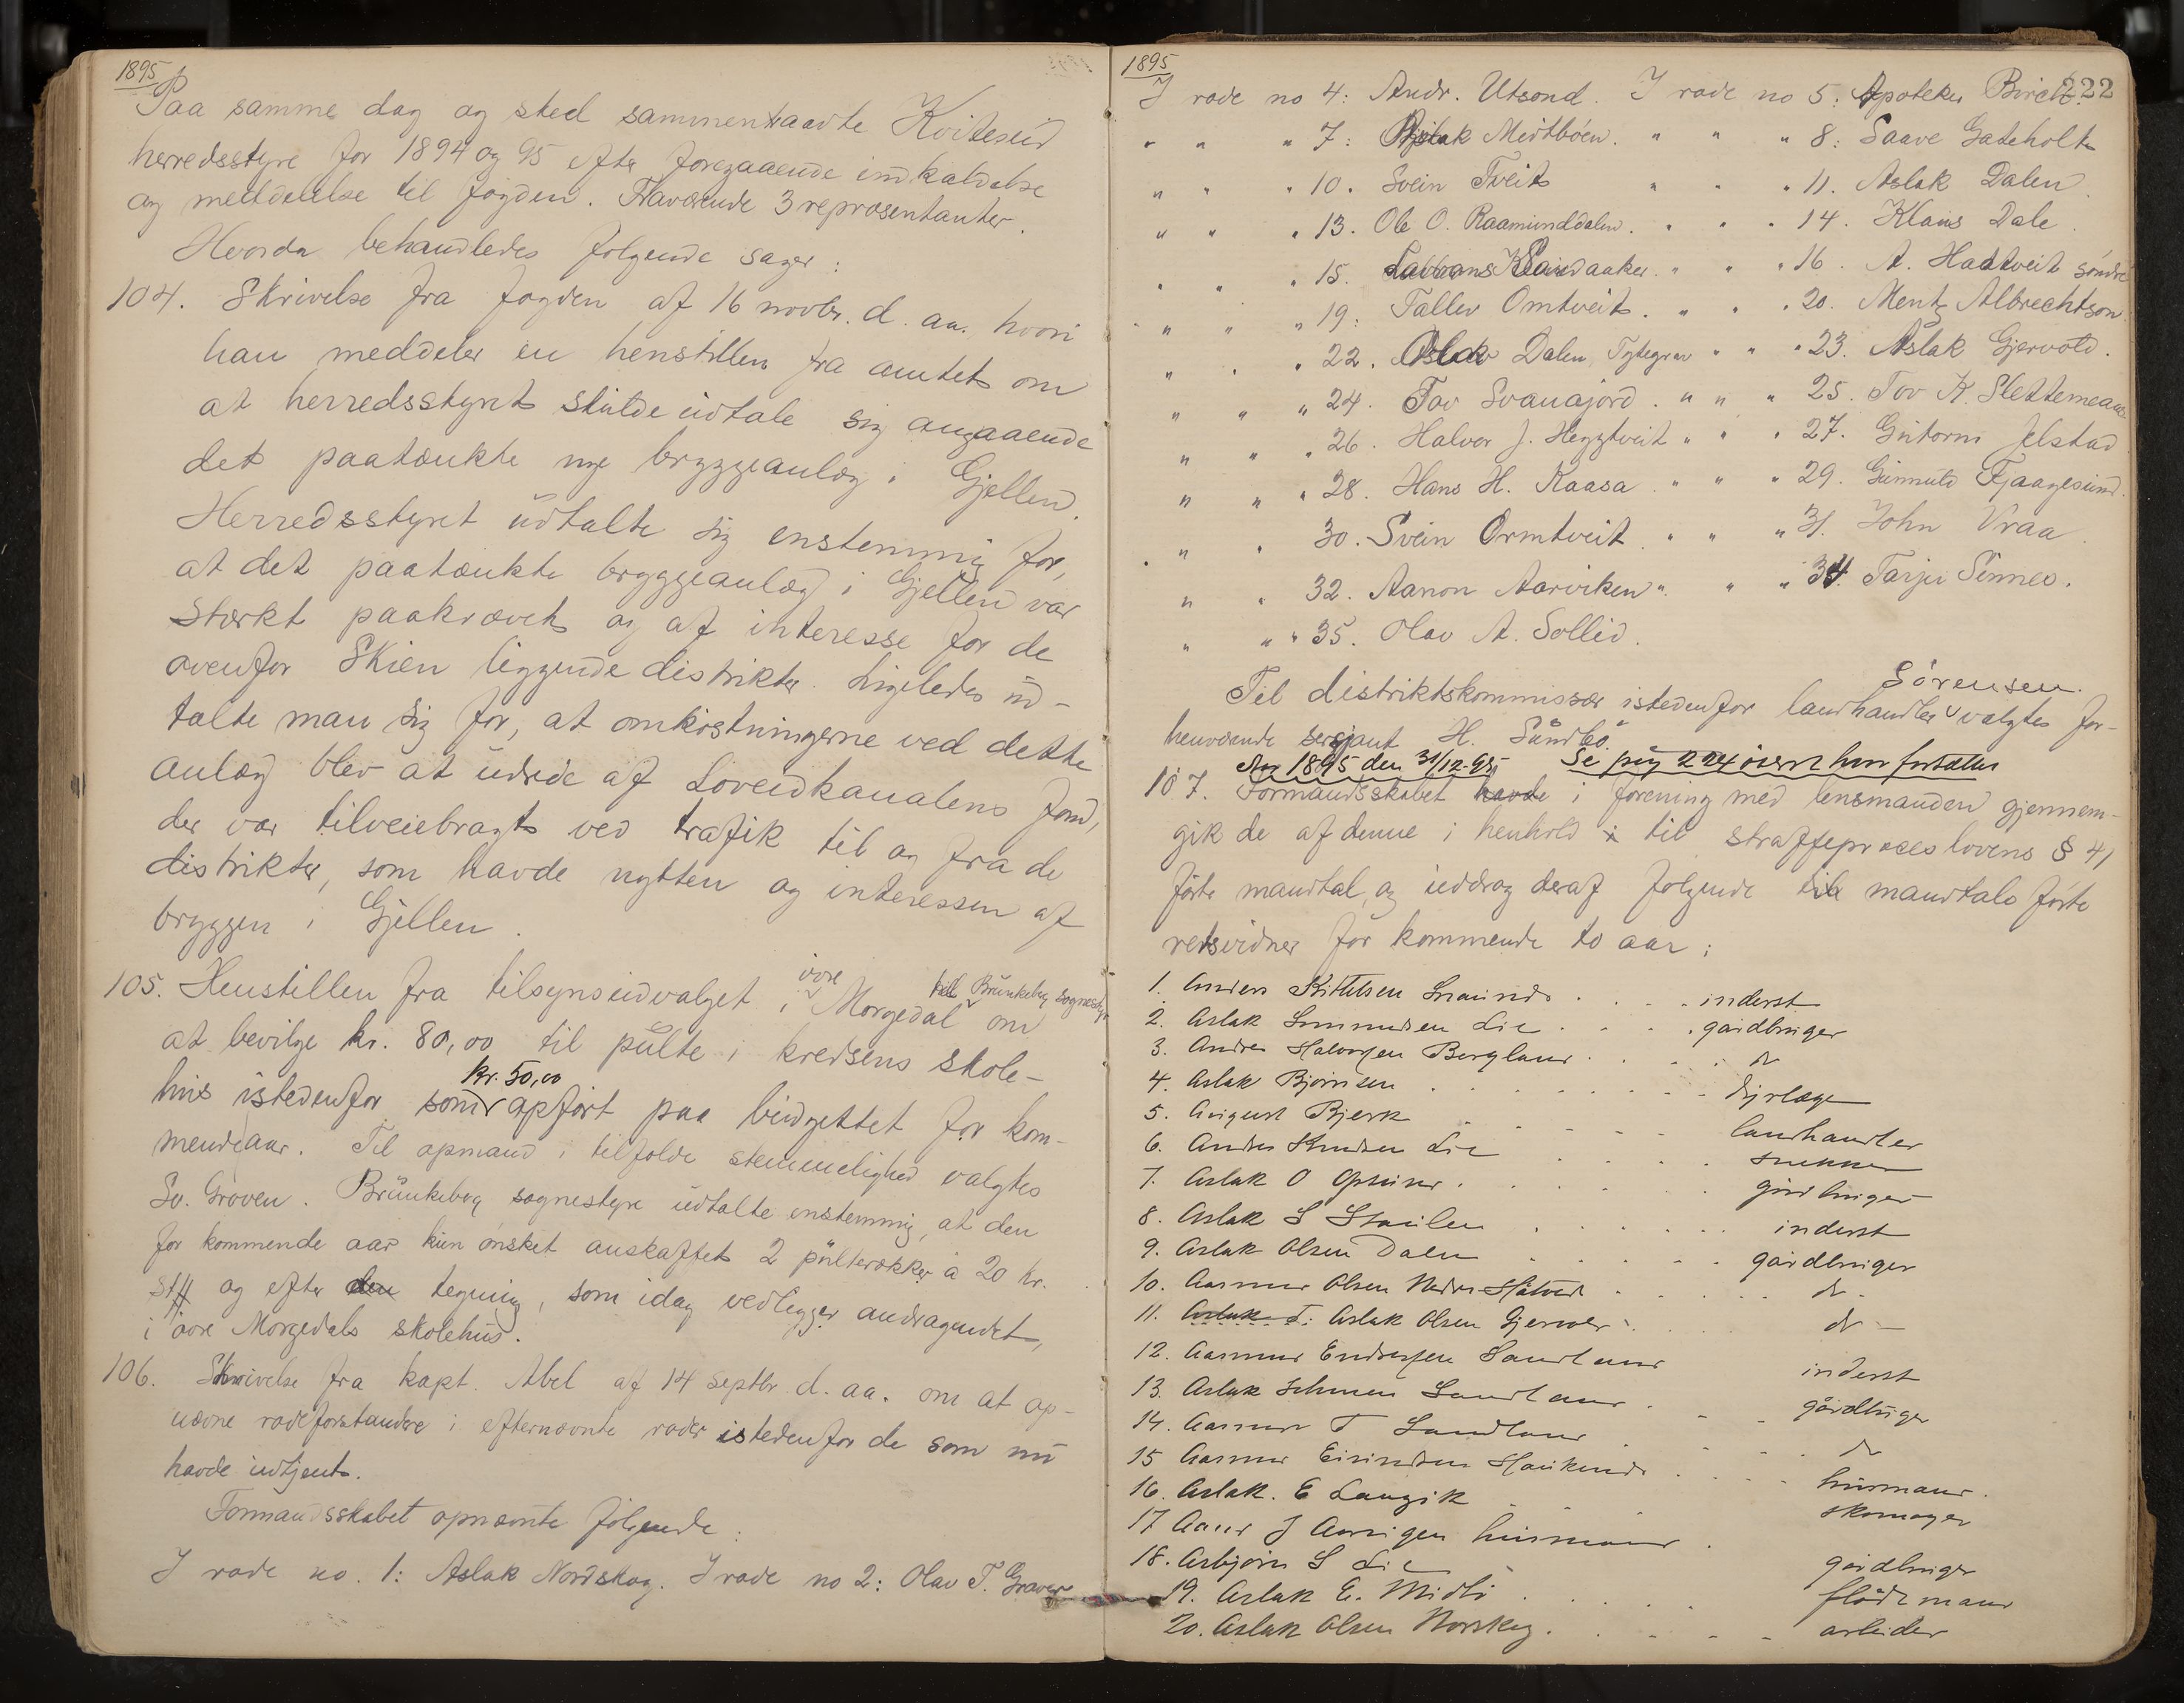 1895
Paa samme dag og sted sammentraadte Kviteseid
herredsstyre for 1894 og 95 efter foregaaende indkaldelse
og meddelelse til fogden. Fraværende 3 repræsentanter.
Hvorda behandledes følgende sager:
104. Skrivelse fra fogden af 16 novbr. d. aa. hvori
han meddeler en henstillen fra amtet om
at herredsstyret skulde udtale sig angaaende
det paatænkte nye bryggeanlæg i Gjellen.
Herredsstyret udtalte sig enstemmig for,
at det paatænkte bryggeanlæg i Gjellen var
stærkt paakrævet og af interesse for de
ovenfor Skien liggende distrikter. Ligeledes ud-
talte man sig for, at omkostningerne ved dette
anlæg blev at udrede af Løveidkanalens fond,
der var tilveiebragt ved trafik til og fra de
distrikter, som havde nytten og interessen af
bryggen i Gjellen.
105. Henstillen fra tilsynsudvalget i øvre Morgedal till Brunkeberg sognestyr om
at bevilge kr. 80,00 til pulte i kredsens skole-
hus istedenfor som kr. 50,00 opført paa budgettet for kom-
mende aar. Til opmand i tilfælde stemmelighed valgtes
Sv. Groven. Brunkeberg sognestyre udtalte enstemmig, at den
for kommende aar kun ønsket anskaffet 2 pulterækker à 20 kr.
stk og efter den tegning, som idag vedlegger andragendet,
i øvre Morgedals skolehus.
106. Skrivelse fra kapt. Abel af 14 septbr d. aa. om at op-
nævne rodeforstandere i efternævnte roder istedenfor de som nu
havde udtjent.
Formandsskabet opnævnte følgende:
I rode no. 1: Aslak Nordskog. I rode no 2: Olav T. Graver
1895
222
I rode no 4: Andr. Utsond. I rode no 5: Apoteker Birch.
" " " 7: Aslak Midtbøen. " " " 8: Saave Gateholt
" " " 10. Svein Tveit " " " 11. Aslak Dalen.
" " " 13. Ole O. Raamunddalen. " " " 14. Klaus Dale.
" " " 15. Sandaaker. " " " 16. A. Haatveit søndre
" " " 19. Tallev Omtveit. " " " 20. Mentz Albrechtson.
" " " 22. Dalen, Tytegrav " " " 23. Aslak Gjervold.
" " " 24. Tov Svanajord. " " " 25. Tov K. Slettemeaas
" " " 26. Halvor J. Heggtveit " " " 27. Gutorm Jelstad
" " " 28. Hans H. Kaasa. " " " 29. Gunnuld Fjaagesund.
" " 30. Svein Ormtveit. " " " 31. John Vraa.
" " 32. Aanon Aarviken ". " " 34. Tarjei Sinnes.
" " " 35. Olav A. Sollid.
Til distriktskommissær istedenfor landhandler Sörensen. valgtes for-
henværende sersjant H. Sundbö.
Aar 1895 den 31/12-95 Se pag 224 øverst hvor fortættes
107. Formandsskabet havde i forening med lensmanden gjennem-
gik de af denne i henhold til straffeproceslovens § 41
førte mandtal, og uddrog deraf følgende til mandtals førte
retsvidner for kommende to aar:
1. Anders Kittilsen . . . . inderst
2. Aslak Lie . . . . gårdbruger
3. Andres Halvorsen Bergland . . . . do
4. Aslak Bjørnsen . . . . dyrlæge
5. August Bjerk . . . . landhandler
6. Anders Knudsen Lie . . . . snekker
7. Aslak O . . . . gårdbruger
8. Aslak S . . . . inderst
9. Aslak Olsen Dalen . . . . gårdbruger
10. Aasmund Olsen Nedre . . . . do
11. Aslak T. Aslak Olsen Gjervold . . . do
12. Aasmund Endresen Sandland inderst
13. Aslak Sandland . . . gårdbruger
14. Aasmund T Sandland . . . do
15 Aasmund Eivindsen . . . husmand.
16. Aslak. E Langvik . . skomager
17 Aanund J husmand .
18. Asbjørn S Lie gårdbruger
19. Aslak E. Midbö . . . . fløtemand
20. Aslak Olsen Norskog . . . . arbeider